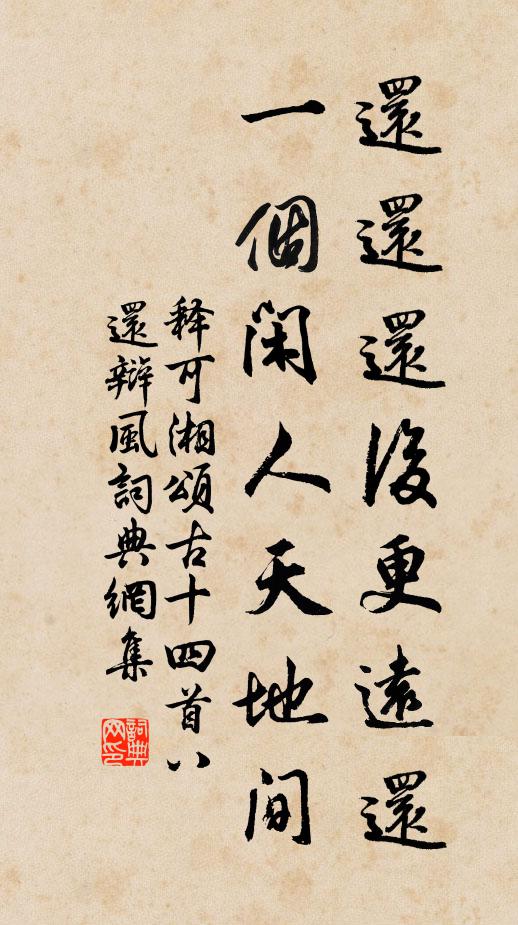 還還還後更遠還
一個閑人天地間
釋可湘頌古十四首八
還辭風詞典網集
詞典網印